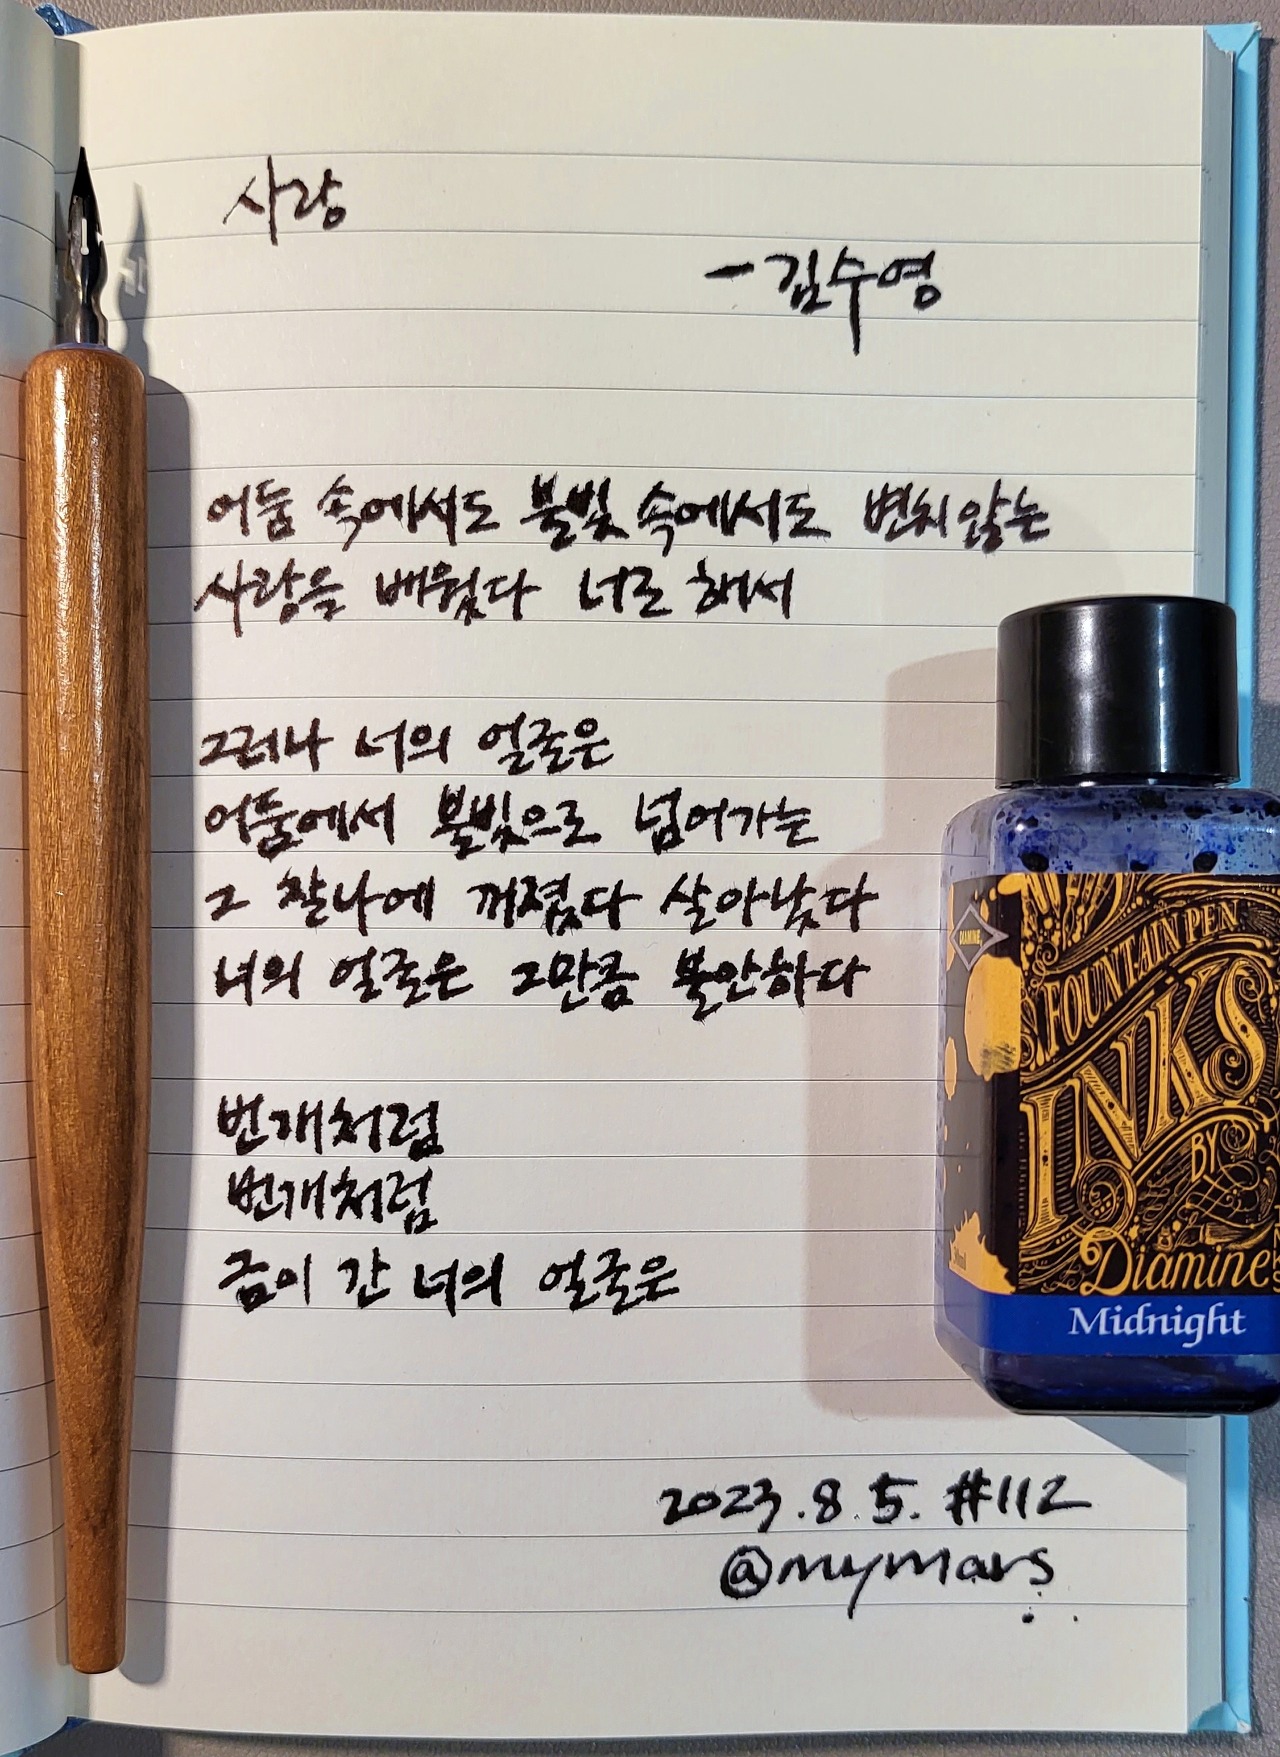 사랑
- 김수영
어둠 속에서도 불빛 속에서도 변치않는
사랑을 배웠다 너로 해서
그러나 너의 얼굴은
어둠에서 불빛으로 넘어가는
그 찰나에 꺼졌다 살아났다
너의 얼굴은 그만큼 불안하다
번개처럼
번개처럼
금이 간 너의 얼굴은
2023.8.5. #112
@mymars
DIAMINE
FOUNTAIN PEN
INKS
BY
Diamine
Midnight